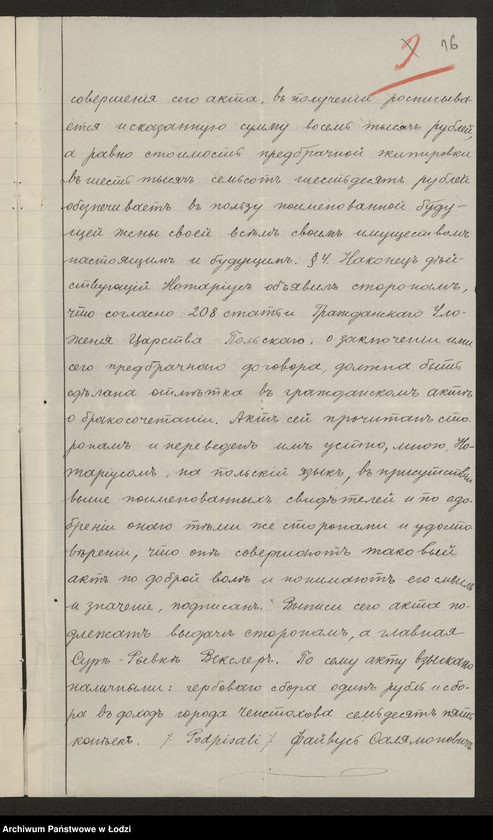 9 16
совершенія сего акта, въ полученіи росписыва-
ется и сказанную сумму восемь тысячъ рублей,
а равно стоимость предбрачной экипировки
въ шесть тысячъ семьсотъ шестьдесятъ рублей
обезпечиваетъ въ пользу поименованной буду-
щей жены своей всѣмъ своимъ имуществомъ
настоящимъ и будущимъ. § 4. Наконецъ дѣй-
ствующій Нотаріусъ объявилъ сторонамъ,
что согласно 208 статьи Гражданскаго Уло-
женія Царства Польскаго, о заключеніи ими
сего предбрачнаго договора, должна быть
сдѣлана отмѣтка въ гражданскомъ актѣ
о бракосочетаніи. Актъ сей прочитанъ сто-
ронамъ и переведенъ имъ устно, мною, Но-
таріусомъ, на польскій языкъ, въ присутствіи
выше поименованныхъ свидѣтелей и по одо-
бреніи онаго тѣми же сторонами и удосто
вѣреніи, что онѣ совершаютъ таковый
актъ по доброй волѣ и понимаютъ его смыслъ
и значеніе, подписанъ. Выписи сего акта по-
длежатъ выдачѣ сторонамъ, а главная
Сурѣ-Рывкѣ Векслеръ. По сему акту взыскано
наличными: гербоваго сбора одинъ рубль и сбо-
ра въ доходъ города Ченстохова семьдесятъ пять
копѣекъ. /-/ Podpisali /-/ Файвусъ Саламоновичъ
Archiwum Państwowe w Łodzi